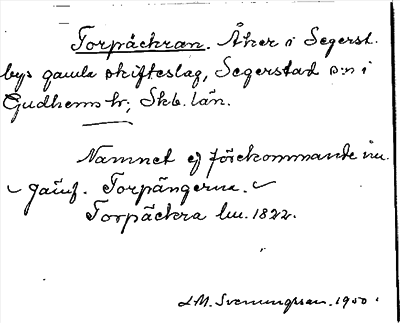 Torpåckran. Åker i Segerst.
bys gamla skifteslag, Segerstad s:n i
Gudhems hr, Skb. län.
Namnet ej förekommande nu.
Jämf. Torpängerna.
Torpåckra lm. 1822.
J.M. Svenungsson. 1950.